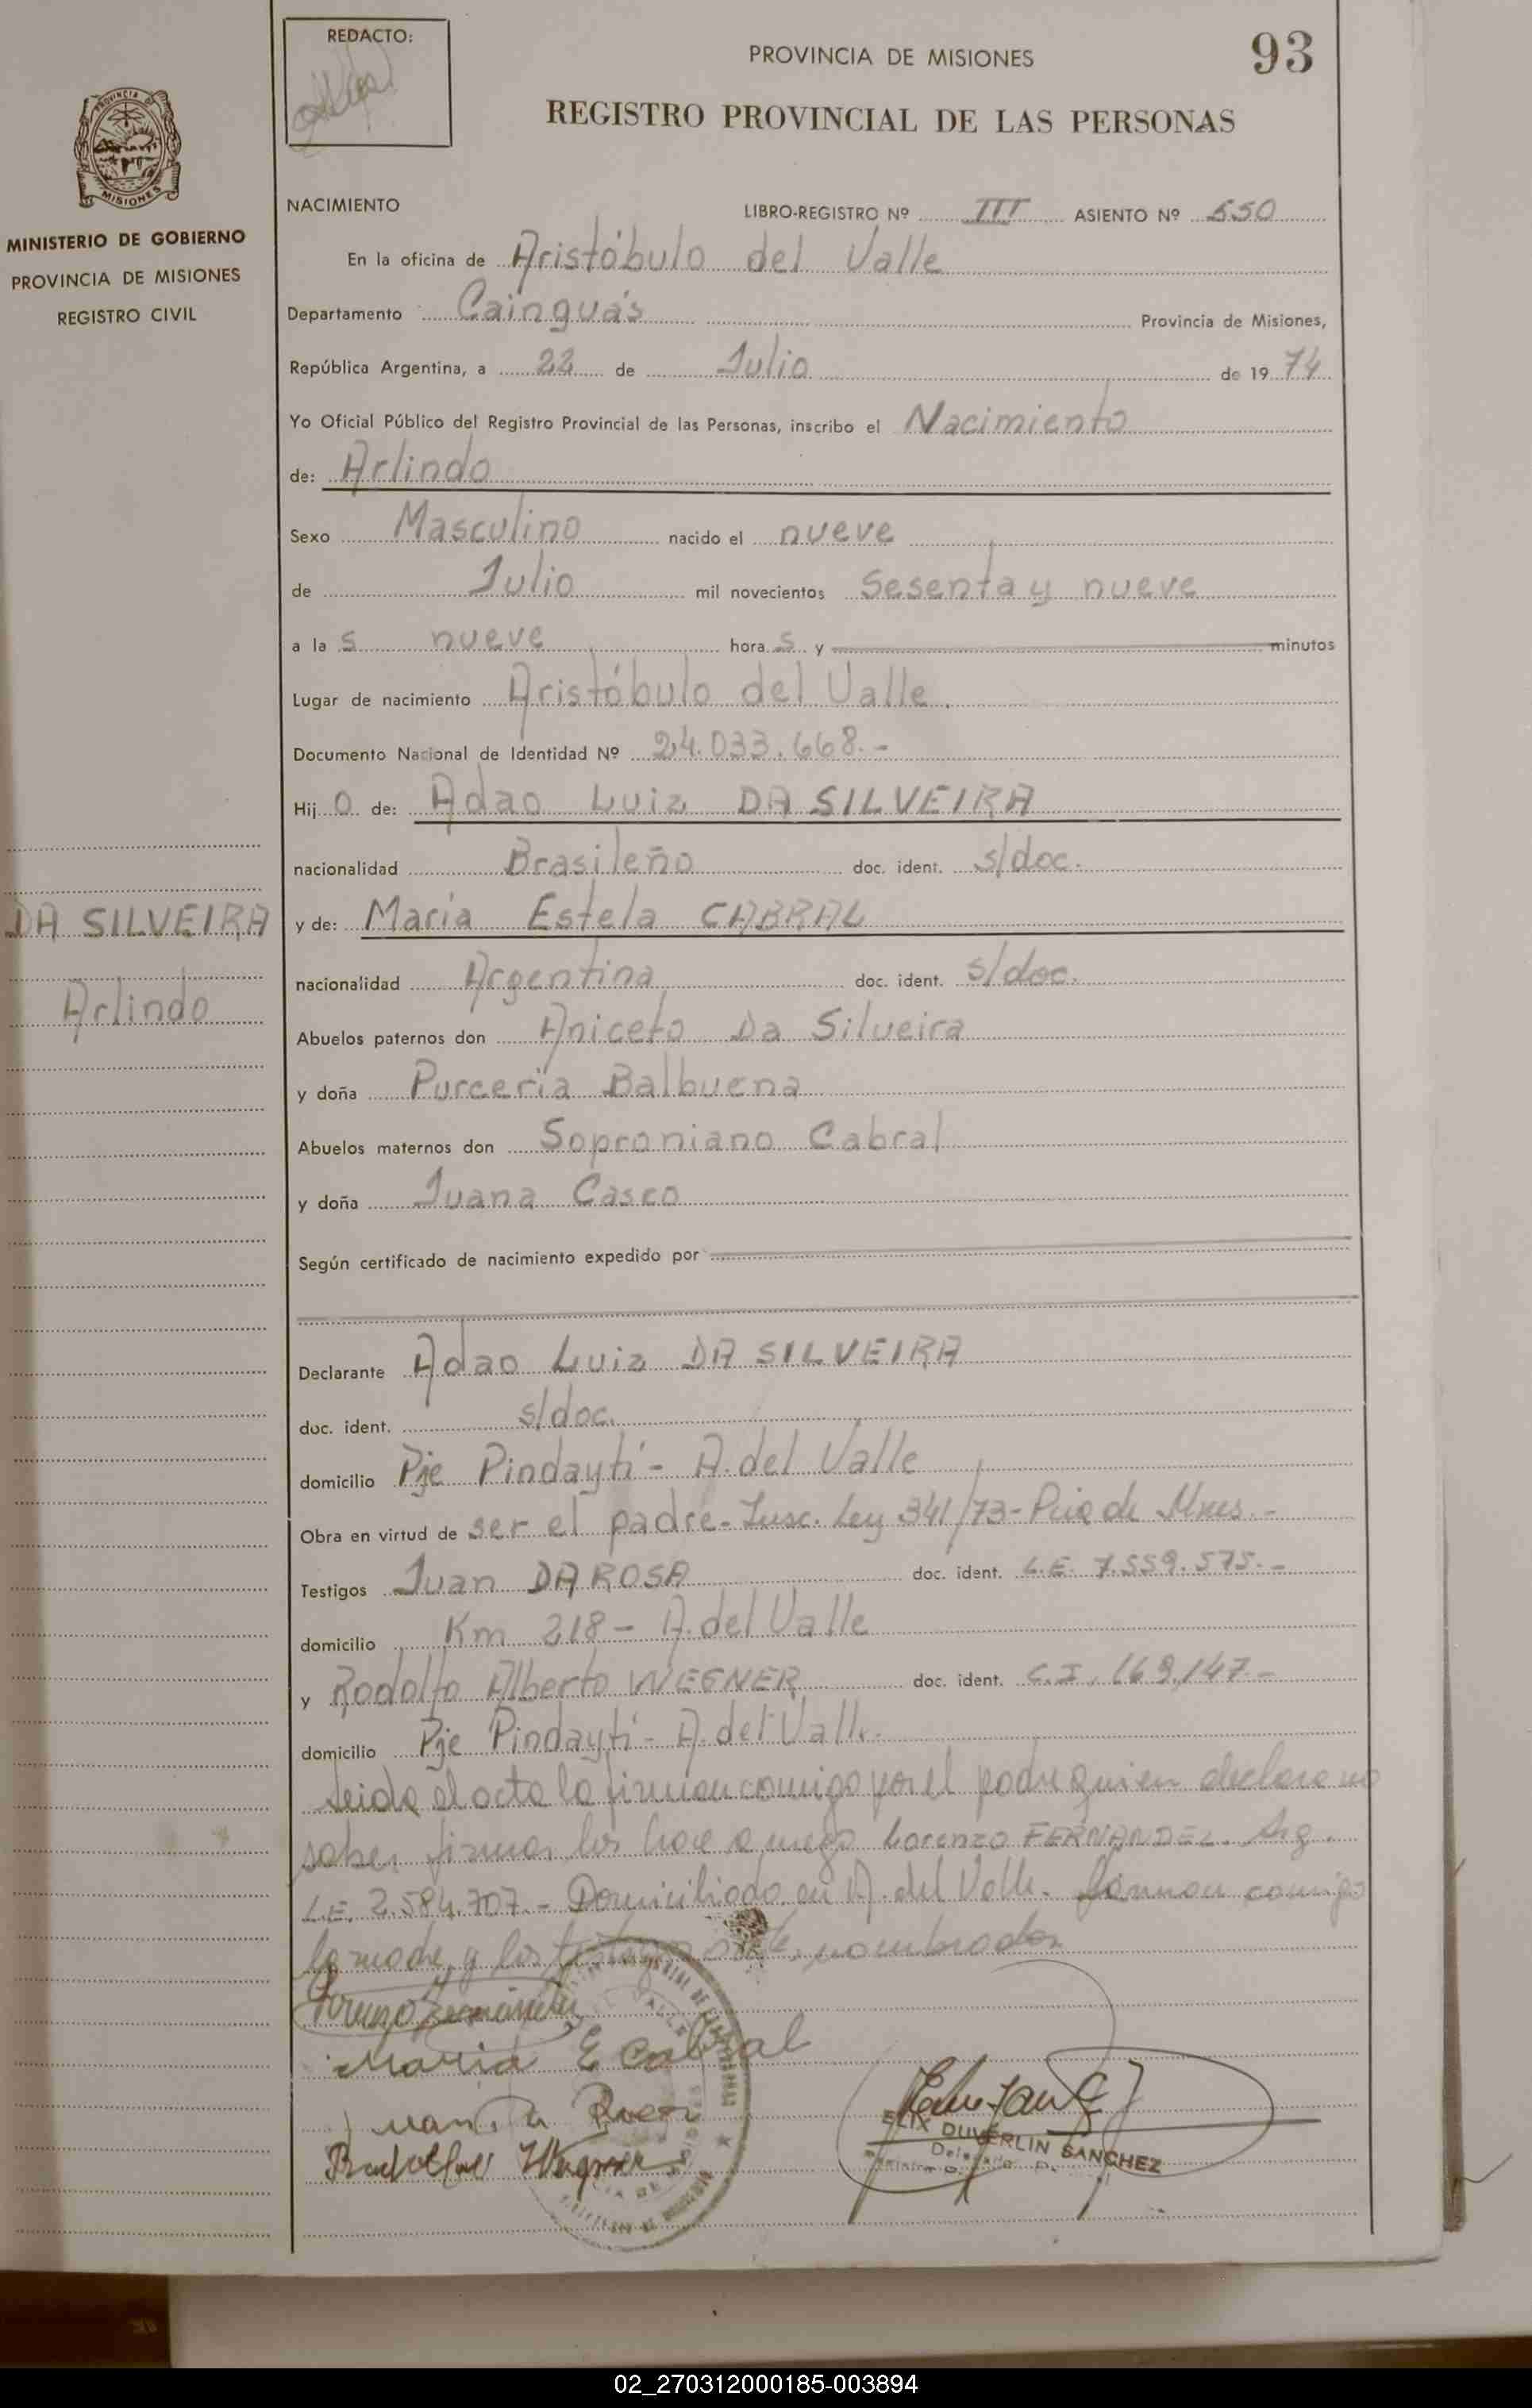 REDACTO:
PROVINCIA DE MISIONES
93
REGISTRO PROVINCIAL DE LAS PERSONAS
MISIONES
MINISTERIO DE GOBIERNO
PROVINCIA DE MISIONES
REGISTRO CIVIL
NACIMIENTO LIBRO-REGISTRO Nº III ASIENTO Nº 550
En la oficina de Aristóbulo del Valle
Departamento Cainguás Provincia de Misiones,
República Argentina, a 22 de Julio de 19 74
Yo Oficial Público del Registro Provincial de las Personas, inscribo el Nacimiento
de: Arlindo
Sexo Masculino nacido el nueve
de Julio mil novecientos Sesenta y nueve
a la s nueve hora s y minutos
Lugar de nacimiento Aristóbulo del Valle
Documento Nacional de Identidad Nº 24.033.668.-
Hij o de: Adao Luiz DA SILVEIRA
nacionalidad Brasileño doc. ident. s/doc.
DA SILVEIRA
y de: Maria Estela CABRAL
nacionalidad Argentina doc. ident. s/doc.
Arlindo
Abuelos paternos don Aniceto Da Silveira
y doña Purceria Balbuena
Abuelos maternos don Soproniano Cabral
y doña Juana Casco
Según certificado de nacimiento expedido por
Declarante Adao Luiz DA SILVEIRA
doc. ident. s/doc.
domicilio Pje Pindaytí - A. del Valle
Obra en virtud de ser el padre - Insc. Ley 341/73 - Pcia de Mnes.-
Testigos Juan DA ROSA doc. ident. L.E. 7.559.575.-
domicilio Km 218 - A. del Valle
y Rodolfo Alberto WEGNER doc. ident. C.I. 169.147-
domicilio Pje Pindaytí - A. del Valle.
Leida el acta la firman comigo por el padre quien declara no
saber firmar los hace a ruego Lorenzo FERNANDEZ. Arg.
L.E. 2.584.707.- Domiciliado en A. del Valle. Firman comigo
la madre y los testigos ante nombrados
Maria E Cabral
ELIX DUVERLIN SANCHEZ
02_270312000185-003894